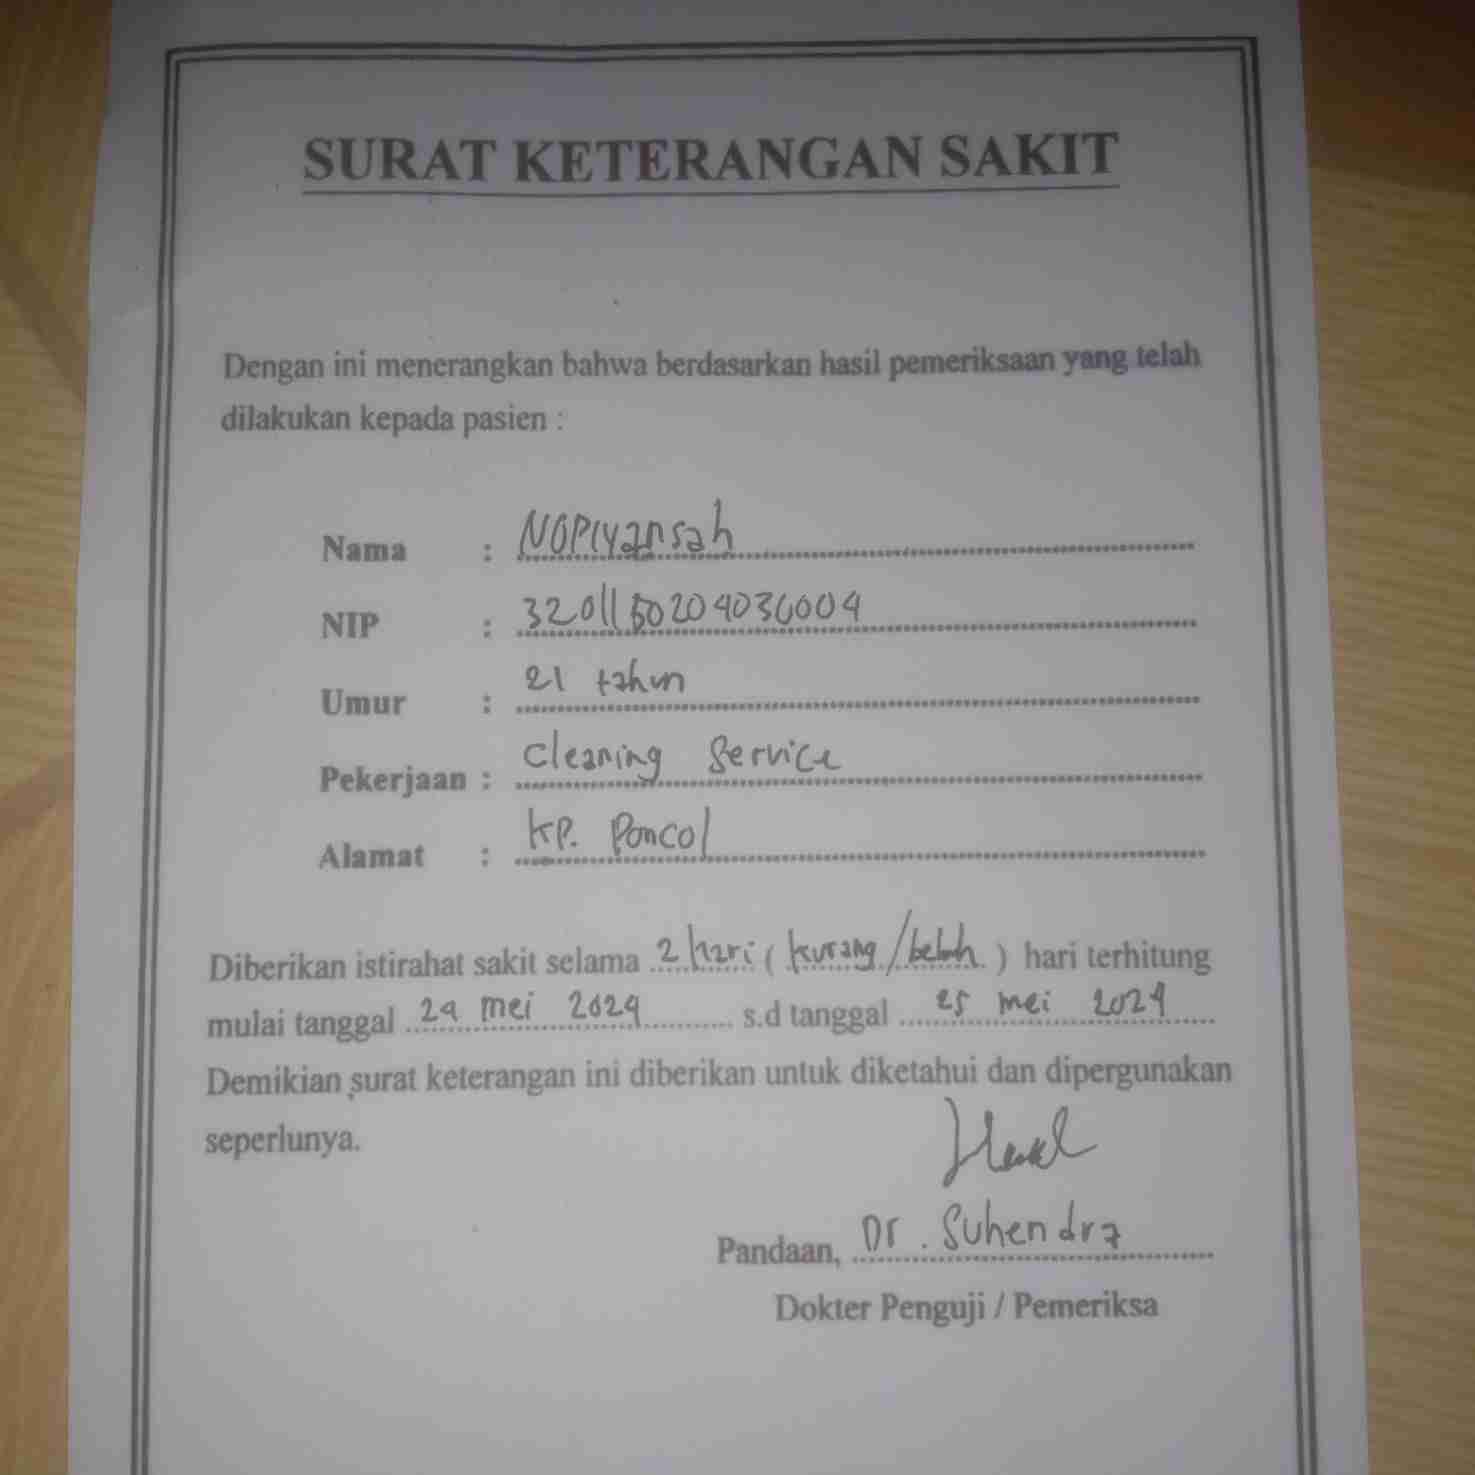 SURAT KETERANGAN SAKIT
Dengan ini menerangkan bahwa berdasarkan hasil pemeriksaan yang telah
dilakukan kepada pasien :
Nama : NOPIyansah
NIP : 3201150204030004
Umur : 21 tahun
Pekerjaan : Cleaning Service
Alamat : KP. Poncol
Diberikan istirahat sakit selama 2 hari ( kurang / ) hari terhitung
mulai tanggal 24 mei 2024 s.d tanggal 25 mei 2024
Demikian surat keterangan ini diberikan untuk diketahui dan dipergunakan
seperlunya.
Pandaan, Dr. Suhendra
Dokter Penguji / Pemeriksa